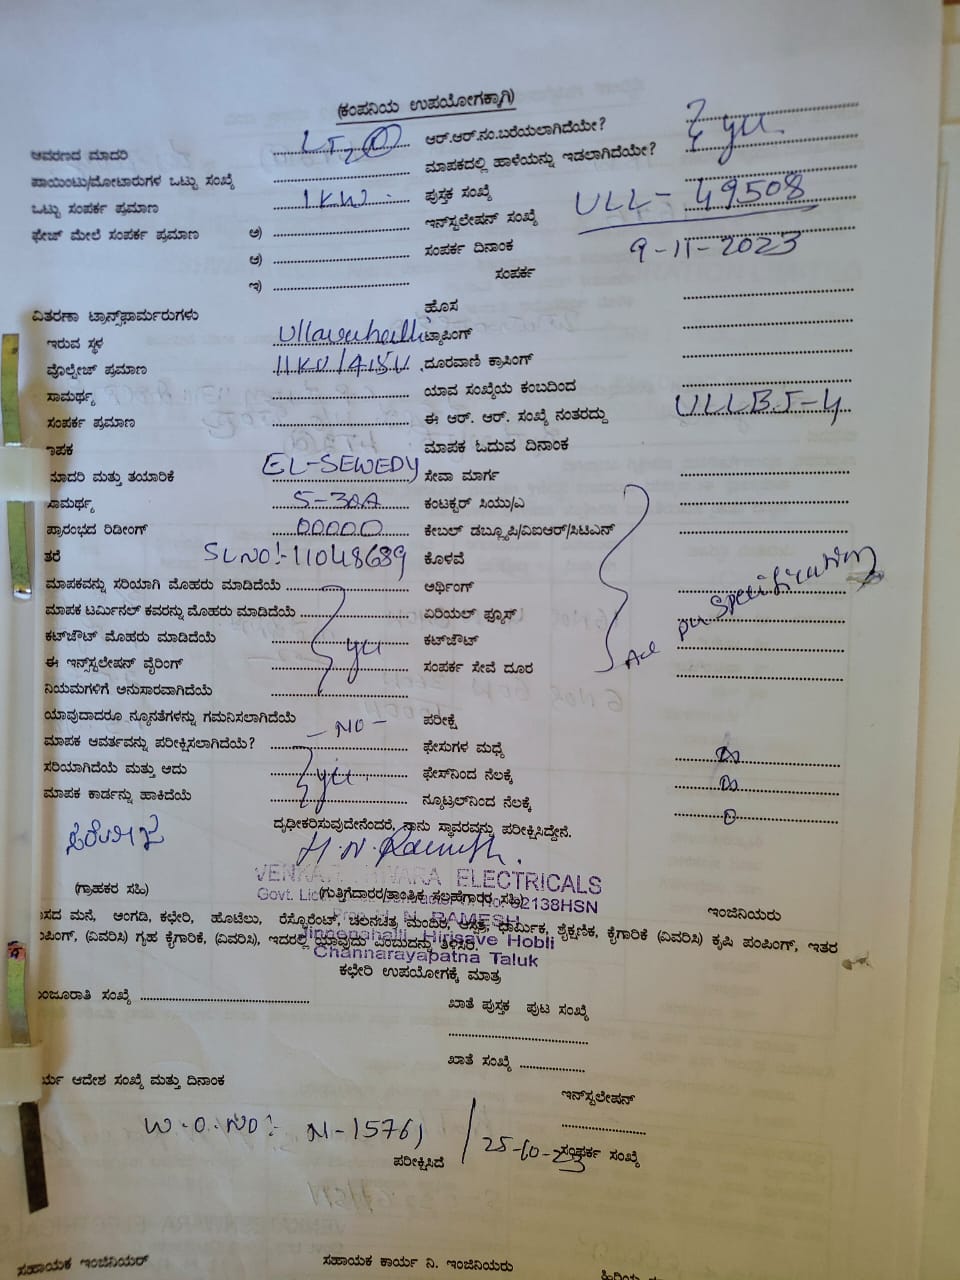 (ಕಂಪನಿಯ ಉಪಯೋಗಕ್ಕಾಗಿ)
ಆವರಣದ ಮಾದರಿ LT2 ಆರ್.ಆರ್.ನಂ.ಬರೆಯಲಾಗಿದೆಯೇ?
ಪಾಯಿಂಟು/ಮೋಟಾರುಗಳ ಒಟ್ಟು ಸಂಖ್ಯೆ ಮಾಪಕದಲ್ಲಿ ಹಾಳೆಯನ್ನು ಇಡಲಾಗಿದೆಯೇ?
ಒಟ್ಟು ಸಂಪರ್ಕ ಪ್ರಮಾಣ 1KW ಪುಸ್ತಕ ಸಂಖ್ಯೆ
ಫೇಜ್ ಮೇಲೆ ಸಂಪರ್ಕ ಪ್ರಮಾಣ ಅ) ಇನ್‌ಸ್ಟಲೇಷನ್ ಸಂಖ್ಯೆ ULL-49508
ಆ) ಸಂಪರ್ಕ ದಿನಾಂಕ 9-11-2023
ಇ) ಸಂಪರ್ಕ
ವಿತರಣಾ ಟ್ರಾನ್ಸ್‌ಫಾರ್ಮರುಗಳು ಹೊಸ
ಇರುವ ಸ್ಥಳ Ullavahalli ಟ್ಯಾಪಿಂಗ್
ವೊಲ್ಟೇಜ್ ಪ್ರಮಾಣ 11KV/415V ದೂರವಾಣಿ ಕ್ರಾಸಿಂಗ್
ಸಾಮರ್ಥ್ಯ ಯಾವ ಸಂಖ್ಯೆಯ ಕಂಬದಿಂದ
ಸಂಪರ್ಕ ಪ್ರಮಾಣ ಈ ಆರ್. ಆರ್. ಸಂಖ್ಯೆ ನಂತರದ್ದು ULLBJ-4
ಾಪಕ ಮಾಪಕ ಓದುವ ದಿನಾಂಕ
ಮಾದರಿ ಮತ್ತು ತಯಾರಿಕೆ EL-SEWEDY ಸೇವಾ ಮಾರ್ಗ
ಸಾಮರ್ಥ್ಯ 5-30A ಕಂಟಕ್ಟರ್ ಸಿಯು/ಎ
ಪ್ರಾರಂಭದ ರಿಡೀಂಗ್ 00000 ಕೇಬಲ್ ಡಬ್ಲ್ಯೂಪಿ/ವಿಐಆರ್/ಸಿಟಿಎಸ್
ತರೆ SL NO:-11048689 ಕೊಳವೆ
ಮಾಪಕವನ್ನು ಸರಿಯಾಗಿ ಮೊಹರು ಮಾಡಿದೆಯೆ ಆರ್ಥಿಂಗ್
ಮಾಪಕ ಟರ್ಮಿನಲ್ ಕವರನ್ನು ಮೊಹರು ಮಾಡಿದೆಯೆ ಏರಿಯಲ್ ಫ್ಯೂಸ್
ಕಟ್‌ಔಟ್ ಮೊಹರು ಮಾಡಿದೆಯೆ ಕಟ್‌ಔಟ್
ಈ ಇನ್‌ಸ್ಟಲೇಷನ್ ವೈರಿಂಗ್ ಸಂಪರ್ಕ ಸೇವೆ ದೂರ
per specification
ನಿಯಮಗಳಿಗೆ ಅನುಸಾರವಾಗಿದೆಯೆ
ಯಾವುದಾದರೂ ನ್ಯೂನತೆಗಳನ್ನು ಗಮನಿಸಲಾಗಿದೆಯೆ - NO - ಪರೀಕ್ಷೆ
ಮಾಪಕ ಆವರ್ತವನ್ನು ಪರೀಕ್ಷಿಸಲಾಗಿದೆಯೆ? ಫೇಸುಗಳ ಮಧ್ಯೆ
ಸರಿಯಾಗಿದೆಯೆ ಮತ್ತು ಅದು ಫೇಸ್‌ನಿಂದ ನೆಲಕ್ಕೆ
ಮಾಪಕ ಕಾರ್ಡನ್ನು ಹಾಕಿದೆಯೆ ನ್ಯೂಟ್ರಲ್‌ನಿಂದ ನೆಲಕ್ಕೆ
ದೃಢೀಕರಿಸುವುದೇನೆಂದರೆ, ನಾನು ಸ್ಥಾವರವನ್ನು ಪರೀಕ್ಷಿಸಿದ್ದೇನೆ.
H.N. Ramesh.
ELECTRICALS
(ಗ್ರಾಹಕರ ಸಹಿ) (ಗುತ್ತಿಗೆದಾರರ/ತಾಂತ್ರಿಕ ಸಲಹೆಗಾರರ ಸಹಿ) ಇಂಜಿನಿಯರು
Govt. 2138HSN
ಾಸದ ಮನೆ, ಅಂಗಡಿ, ಕಛೇರಿ, ಹೊಟೆಲು, ರೆಸ್ಟೊರೆಂಟ್, ಚಲನಚಿತ್ರ ಮಂದಿರ, ಆಸ್ಪತ್ರೆ, ಧಾರ್ಮಿಕ, ಶೈಕ್ಷಣಿಕ, ಕೈಗಾರಿಕೆ (ವಿವರಿಸಿ) ಕೃಷಿ ಪಂಪಿಂಗ್, ಇತರ
H. N. RAMESH
ಪಿಂಗ್, (ವಿವರಿಸಿ) ಗೃಹ ಕೈಗಾರಿಕೆ, (ವಿವರಿಸಿ), ಇದರಲ್ಲಿ ಯಾವುದು ಎಂಬುದನ್ನು ತಿಳಿಸಿರಿ.
Jinnenahalli, Hirisave Hobli
Channarayapatna Taluk
ಕಛೇರಿ ಉಪಯೋಗಕ್ಕೆ ಮಾತ್ರ
ಂಜೂರಾತಿ ಸಂಖ್ಯೆ ಖಾತೆ ಪುಸ್ತಕ ಪುಟ ಸಂಖ್ಯೆ
ಖಾತೆ ಸಂಖ್ಯೆ
ರ್ಯ ಆದೇಶ ಸಂಖ್ಯೆ ಮತ್ತು ದಿನಾಂಕ ಇನ್‌ಸ್ಟಲೇಷನ್
W.O.NO:- N-15761 / 25-10-23 ಸಂಪರ್ಕ ಸಂಖ್ಯೆ
ಪರೀಕ್ಷಿಸಿದೆ
ಸಹಾಯಕ ಇಂಜಿನಿಯರ್ ಸಹಾಯಕ ಕಾರ್ಯ ನಿ. ಇಂಜಿನಿಯರು